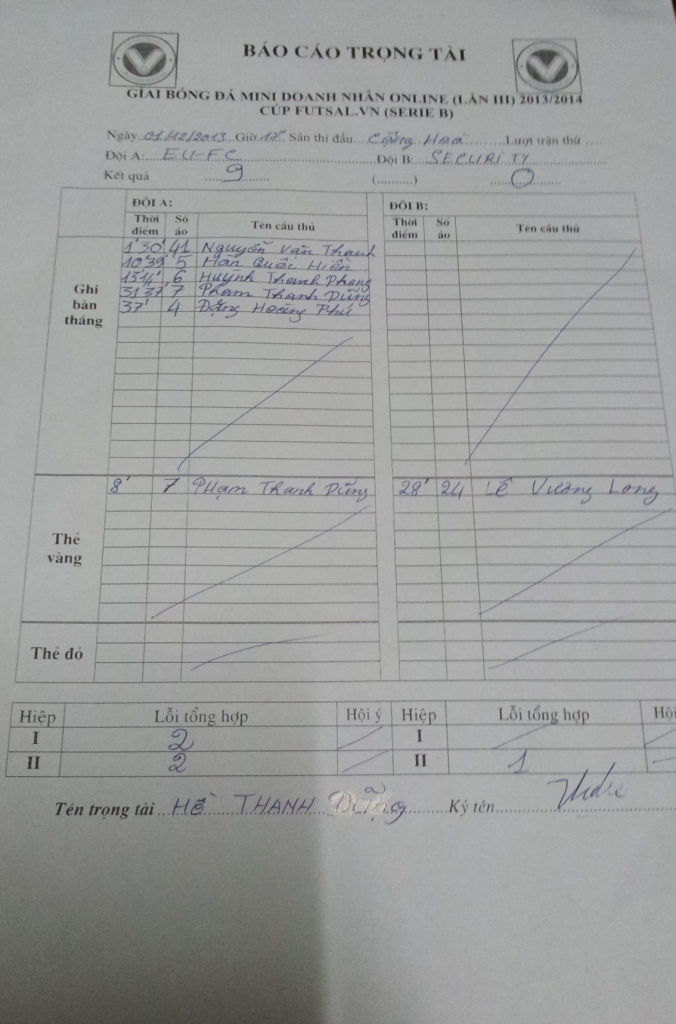 BÁO CÁO TRỌNG TÀI
GIẢI BÓNG ĐÁ MINI DOANH NHÂN ONLINE (LẦN III) 2013/2014
CÚP FUTSAL.VN (SERIE B)
Ngày 01/12/2013 Giờ 17H Sân thi đấu Cộng Hoà Lượt trận thứ
Đội A: EU-FC Đội B: SECURITY
Kết quả 9 (..........) 0
ĐỘI A: ĐỘI B:
Thời điểm Số áo Tên cầu thủ Thời điểm Số áo Tên cầu thủ
Ghi bàn thắng
1' 30' 41 Nguyễn Văn Thanh
10' 39' 5 Hàn Quốc Hiền
13' 14' 6 Huỳnh Thanh Phong
31' 37' 7 Phạm Thanh Dũng
37' 4 Đặng Hoàng Phú
Thẻ vàng
8' 7 Phạm Thanh Dũng 28' 24 Lê Vương Long
Thẻ đỏ
Hiệp Lỗi tổng hợp Hội ý Hiệp Lỗi tổng hợp Hội
I 2 I
II 2 II 1
Tên trọng tài HỒ THANH Dũng Ký tên